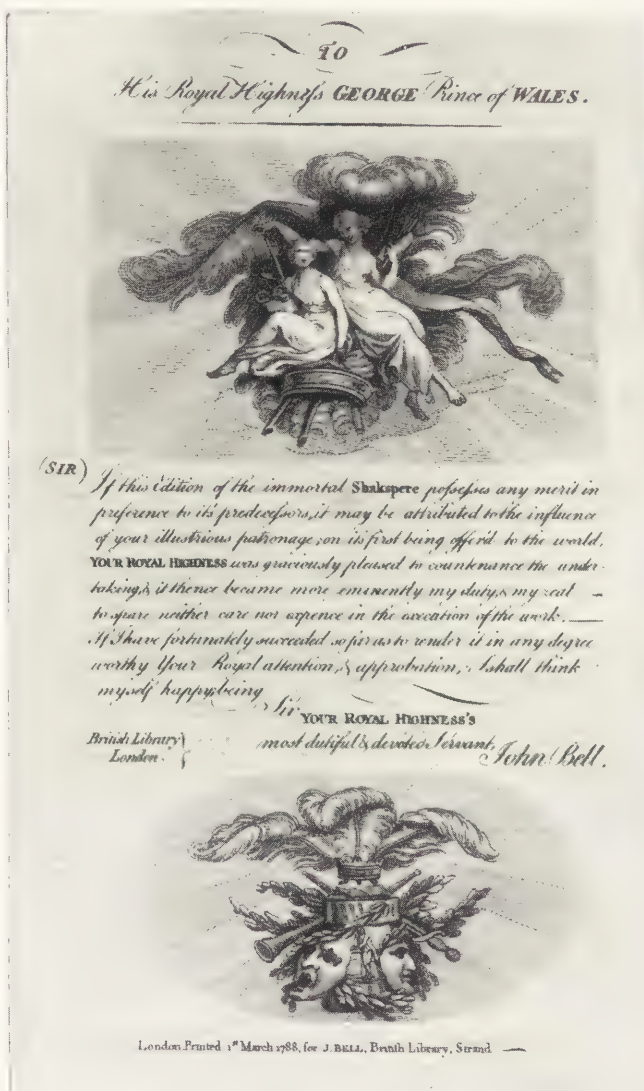 TO
His Royal Highneſs GEORGE Prince of WALES.
(SIR)
If this Edition of the immortal Shakspere poſseſses any merit in
preference to its predeceſsors, it may be attributed to the influence
of your illustrious patronage; on its first being offer'd to the world,
YOUR ROYAL HIGHNESS was graciously pleased to countenance the under-
taking, & it thence became more eminently my duty, & my zeal
to spare neither care nor expence in the execution of the work.
If I have fortunately succeeded so far as to render it in any degree
worthy Your Royal attention, & approbation, I shall think
myself happy, being
Sir
YOUR ROYAL HIGHNESS'S
most dutiful & devoted Servant,
British Library
London.
John Bell.
London Printed 1st March 1788, for J. BELL, British Library, Strand